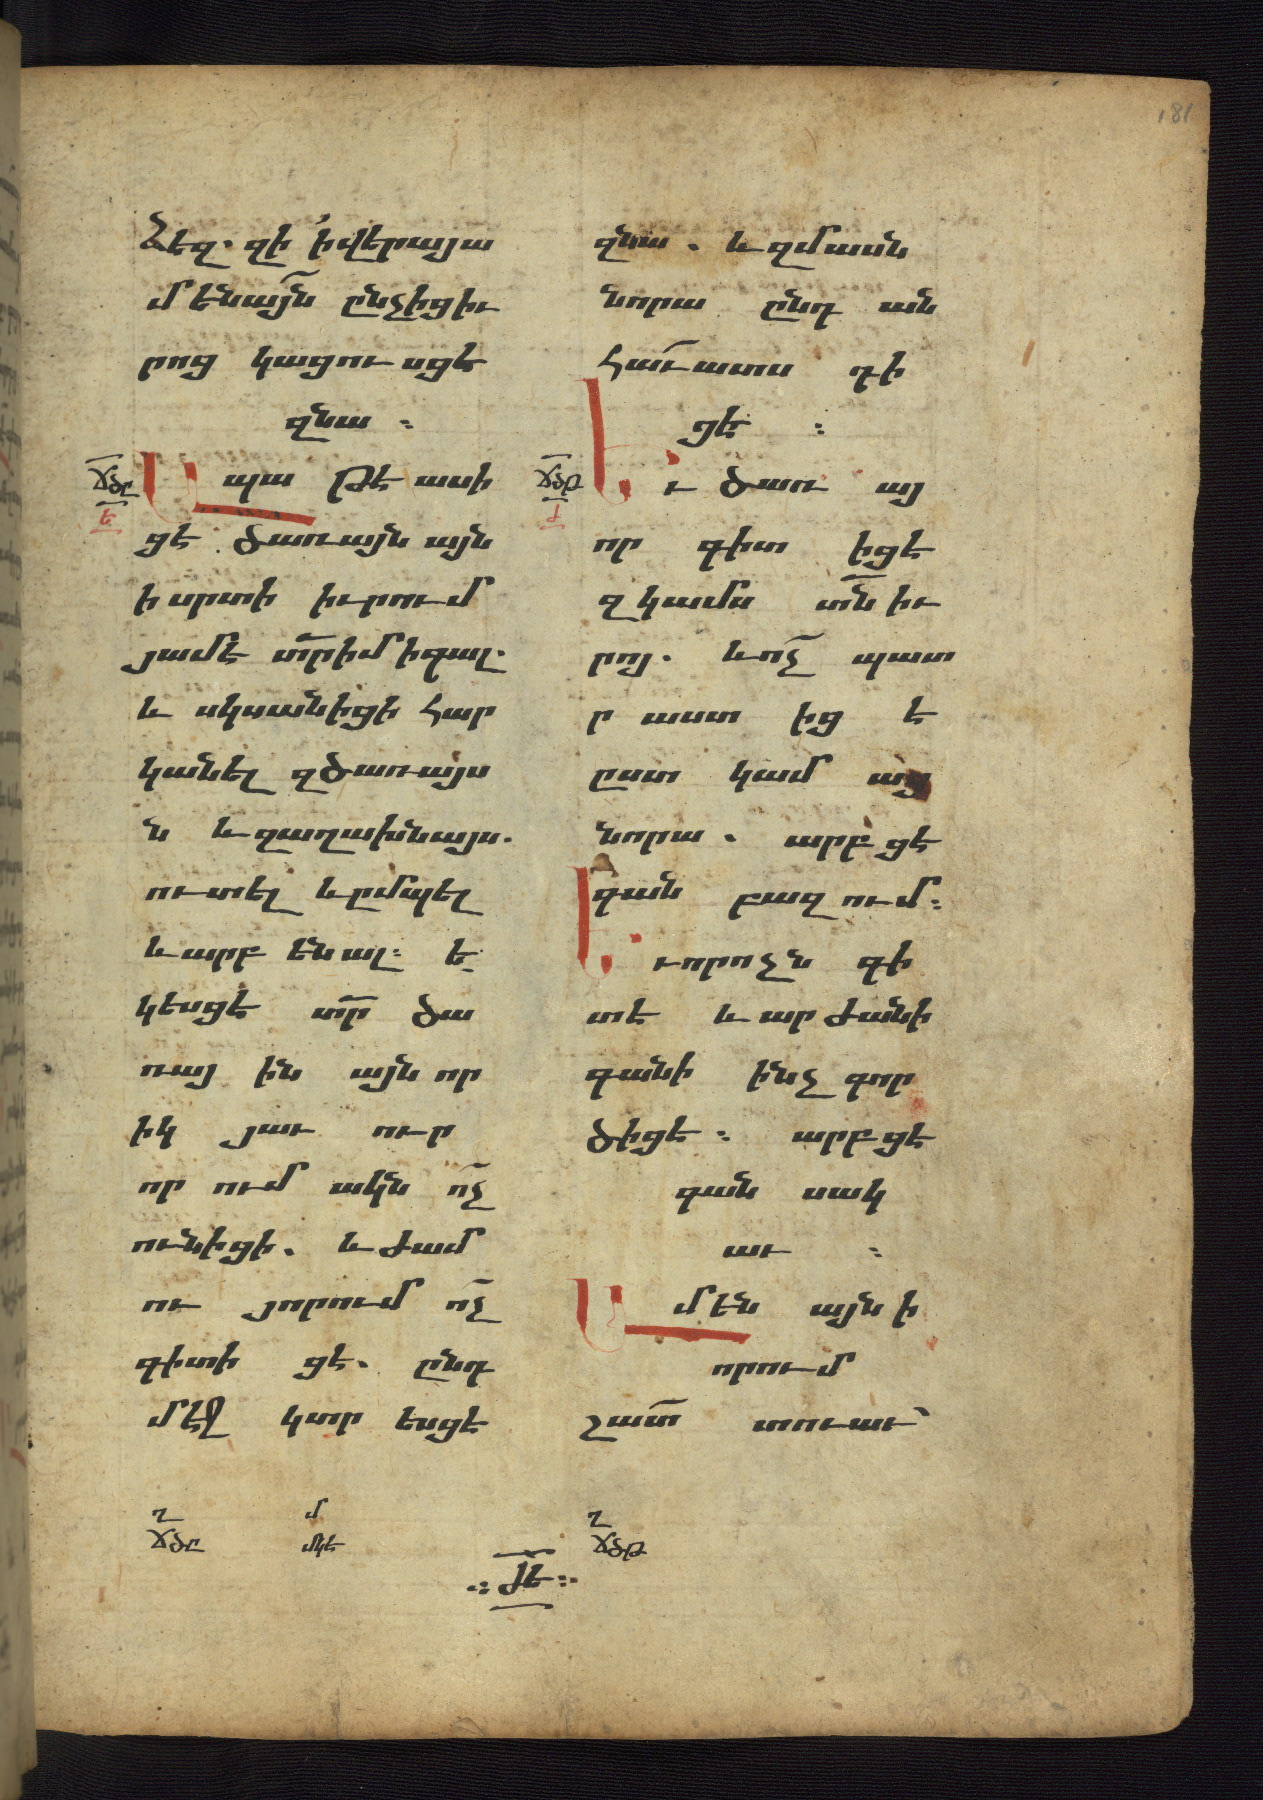 181
ձեզ. զի ՛ի վերայ ա
մենայն ընչից իւ
րոց կացուսցէ
զնա :
ՃԾԸ
Ե
Ապա թէ ասի
ցէ ծառայն այն
ի սրտի իւրում
յամէ տ՟ր իմ ի գալ.
և սկսանիցի հար
կանել զծառայս
ն և զաղախնայս.
ուտել և ըմպել
և արբենալ: Ե
կեսցէ տ՟ր ծա
ռայ ին այն որ
իկ յաւ ուր
որ ում ակն ո՟չ
ունիցի. և ժամ
ու յորում ո՟չ
գիտի ցէ. ընդ
մէջ կտր եսցէ
զնա . և զմասն
նորա ընդ ան
հաւատս դի
ցէ :
ՃԾԹ
Ժ
Եւ ծառ այ
որ գիտ իցէ
զկամս տ՟ն իւ
րոյ. և ո՟չ պատ
ր աստ ից է
ըստ կամ աց
նորա . արբ ցէ
գան բազում:
Իսկ որոչն գի
տէ և արժանի
գանի ինչ գոր
ծիցէ : արբցէ
գան սակ
աւ :
Ամեն այն ի
որում
շատ տուաւ՝
Ղ
ՃԾԸ
մ
մկե
Ղ
ՃԾԹ
ԺԵ